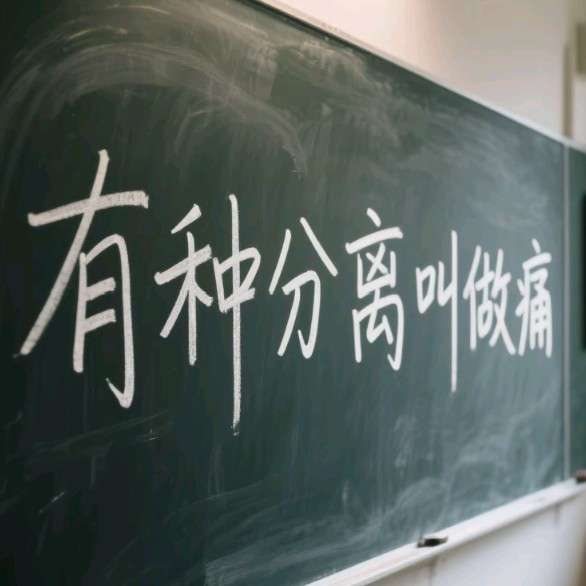 有种分离叫做痛